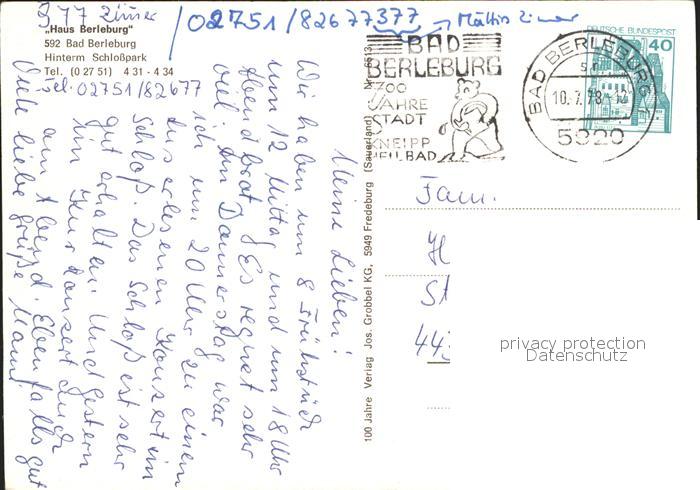 377 Zimmer /02751/82677377 → Mathis Zimmer
„Haus Berleburg"
592 Bad Berleburg
Hinterm Schloßpark
Tel. (0 27 51) 4 31 - 4 34
Tel: 02751/82677
Meine Lieben!
Wir haben um 8 Frühstück
um 12 Mittag und um 18 Uhr
Abendbrot. Es regnet sehr
viel. Am Donnerstag war
ich um 20 Uhr zu einem
auserlesenen Konzert im
Schloß. Das Schloß ist sehr
gut erhalten. Und gestern
im Kurkonzert auch
am Abend. Ebenfalls gut
Viele liebe Grüße
100 Jahre Verlag Jos. Grobbel KG, 5949 Fredeburg (Sauerland) Nr. 6513
BAD
BERLEBURG
700
JAHRE
STADT
KNEIPP
HEILBAD
BAD BERLEBURG 1
10.7.78-12
5920
DEUTSCHE BUNDESPOST
40
Fam.
H
St
44
privacy protection
Datenschutz